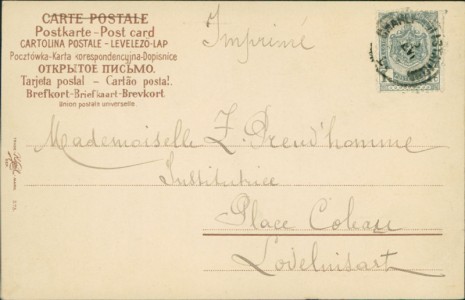 CARTE POSTALE
Postkarte - Post card
CARTOLINA POSTALE - LEVELEZŐ-LAP
Pocztówka-Karta korespondencyjna-Dopisnice
ОТКРЫТОЕ ПИСЬМО.
Tarjeta postal - Cartão postal.
Brefkort-Briefkaart-Brevkort
Union postale universelle.
Imprimé
Mademoiselle Z. Preud'homme
Institutrice
Place Coleau
Lodelinsart